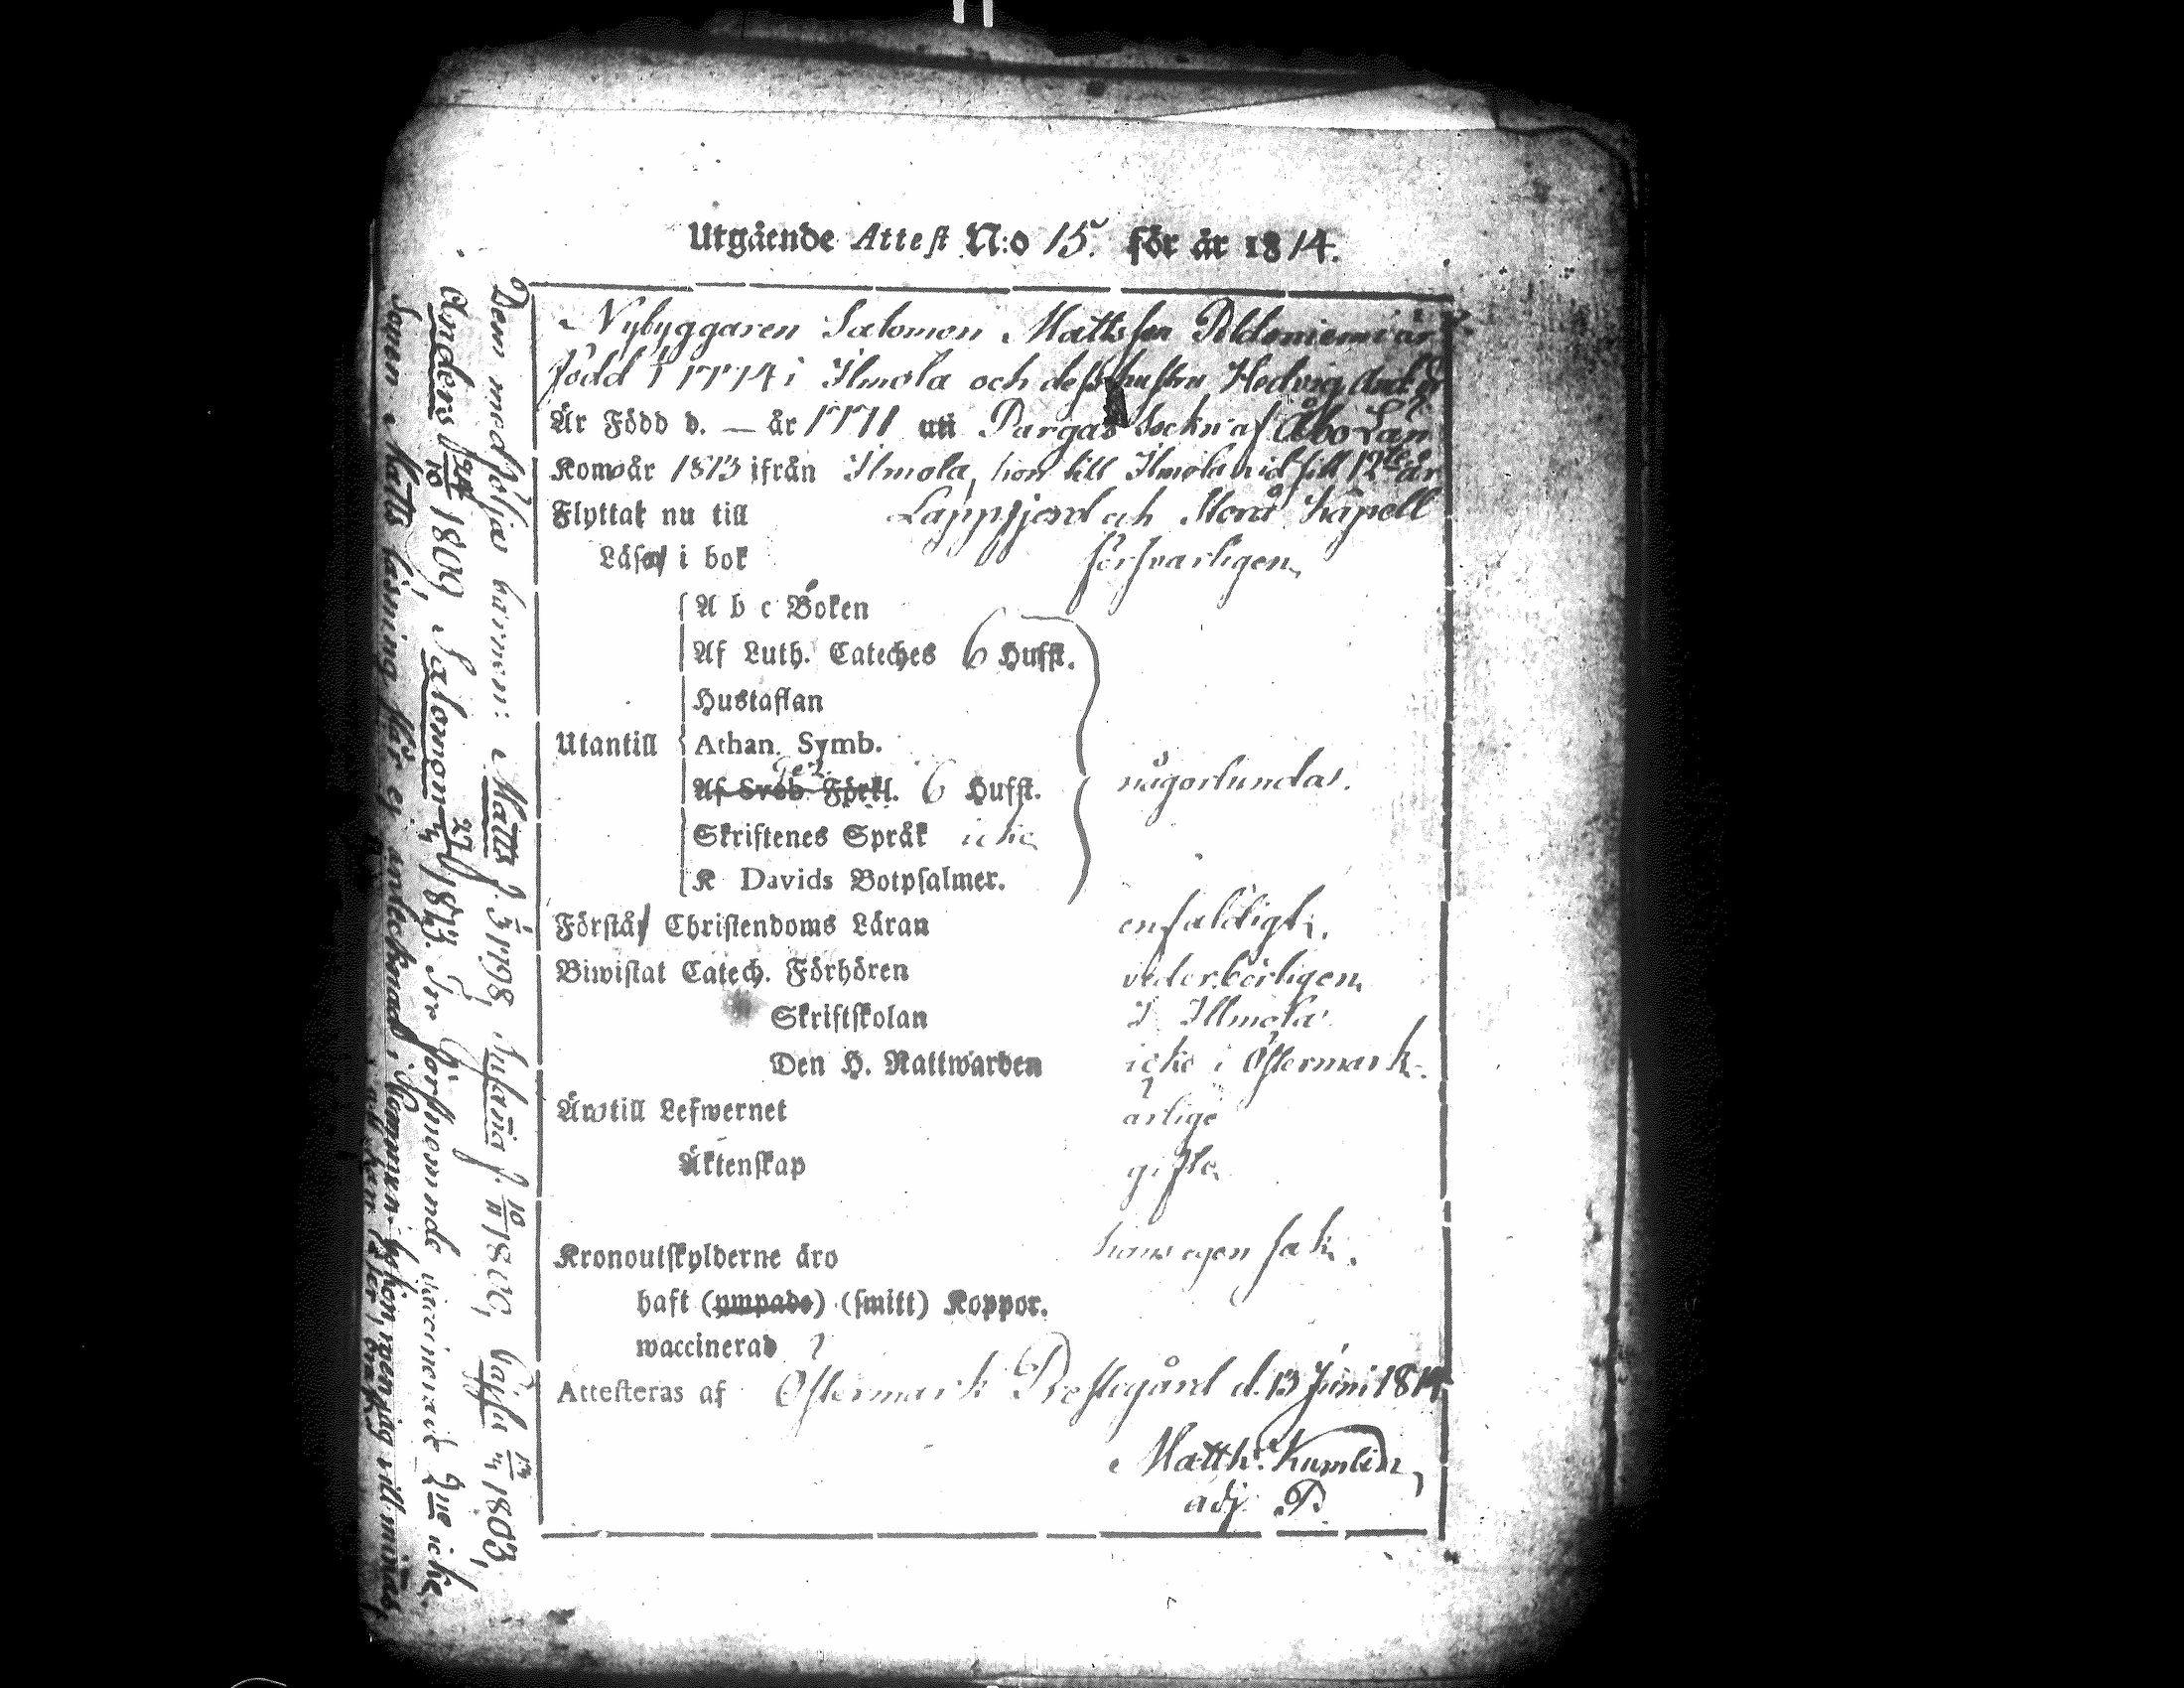 Utgående Attest N:o 15. för år 1814.
Nybyggaren Salomon Mattsson Poldoniemi är
född 1774 i Ilmola och dess hustru Hedvig And:dr
Är Född d. — år 1771 uti Pargas Sockn af Åbo Län
Kom år 1813 ifrån Ilmola, hon till Ilmola vid sitt 12te år
Flyttat nu till Lappfjerd och Storå Kapell
Läsa i bok försvarligen
A b c Boken
Af Luth. Cateches 6 Hufst.
Hustaflan
Utantill Athan. Symb.
Af Sveb. Förkl. 6 Hufst. någorlunda.
Skriftenes Språk icke
K Davids Botpsalmer.
Förstå Christendoms Läran enfaldigt.
Biwistat Catech. Förhören vederbörligen
Skriftskolan I Illmola
Den H. Nattwarden icke i Östermark.
Äro till Lefwernet ärlige
Äktenskap gifte
Kronoutskylderne äro hans egen sak.
haft (ympade) (smitt) Koppor.
waccinerad ?
Attesteras af Östermark Prestegård d. 13 Juni 1814
Matth: Kumlin
adj. P.
Dem medfölja barnen: Matts f. 1798, f. 10/11 1800, Cajsa 1803,
Anders 1809 Salomon 1813. Tre förstnemnde vaccinerade 2ne icke
Sonen Matts läsning här ej antecknad i Kommun-boken,